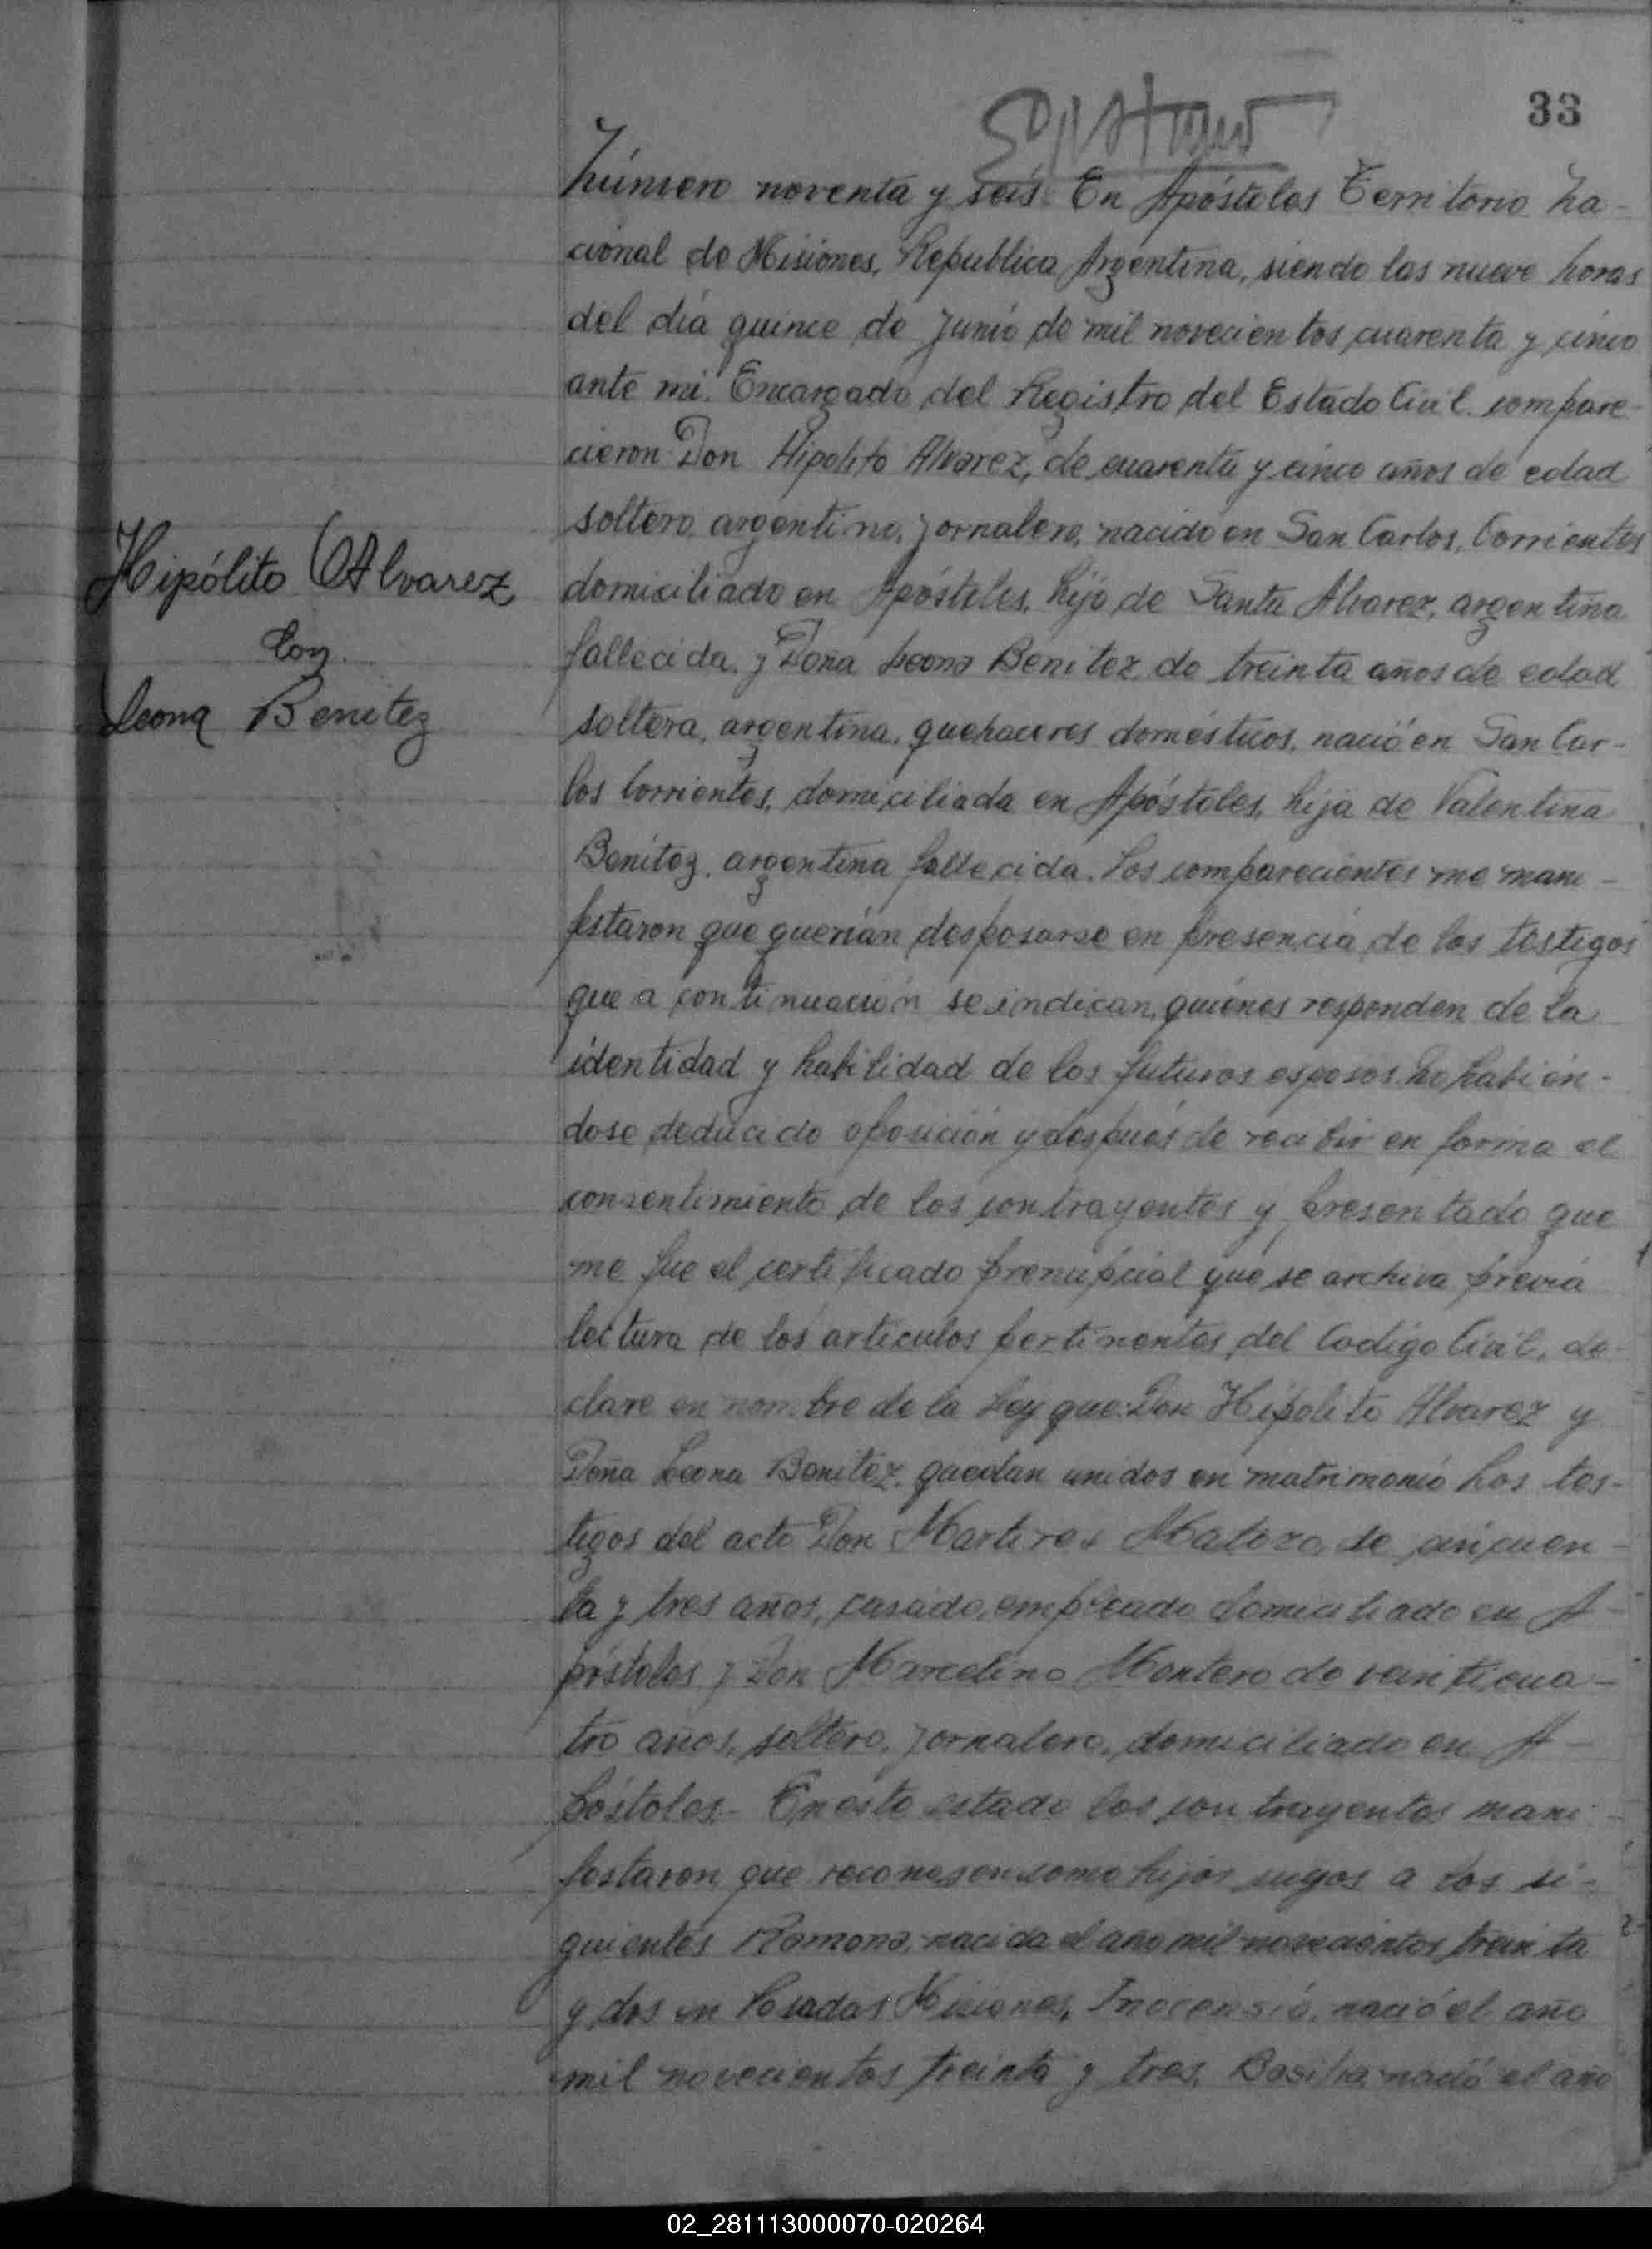 33
Número noventa y seis: En Apóstoles Territorio Na-
cional de Misiones, Republica Argentina, siendo las nueve horas
del día quince de Junio de mil novecientos cuarenta y cinco
ante mi. Encargado del Registro del Estado Civil compare-
cieron Don Hipolito Alvarez, de cuarenta y cinco años de edad
soltero, argentino, jornalero, nacido en San Carlos, Corrientes
domiciliado en Apóstoles, hijo de Santa Alvarez, argentina
fallecida, y Doña Leona Benitez de treinta años de edad
soltera, argentina, quehaceres domésticos, nació en San Car-
los Corrientes, domiciliada en Apóstoles, hija de Valentina
Benítez, argentina fallecida. Los comparecientes me mani-
festaron que querían desposarse en presencia de los testigos
que a continuación se indican, quiénes responden de la
identidad y habilidad de los futuros esposos. No habién-
dose deducido oposición y después de recibir en forma el
consentimiento de los contrayentes y presentado que
me fue el certificado prenupcial que se archiva previa
lectura de los artículos pertinentes del Codigo Civil, de-
clare en nombre de la Ley que: Don Hipolito Alvarez y
Doña Leona Benitez, quedan unidos en matrimonio Los tes-
tigos del acto Don Martires de cincuen-
ta y tres años, casado, empleado domiciliado en A-
póstoles y Don Marcelino Montero de veinticua-
tro años, soltero, jornalero, domiciliado en A-
póstoles.- En este estado los contrayentes mani-
festaron que reconosen como hijos suyos a los si-
guientes Ramona, nacida el año mil novecientos treinta
y dos en Posadas Misiones, Inocensio, nació el año
mil novecientos treinta y tres, nació el año
Hipólito Alvarez
Con
Leona Benitez
02_281113000070-020264